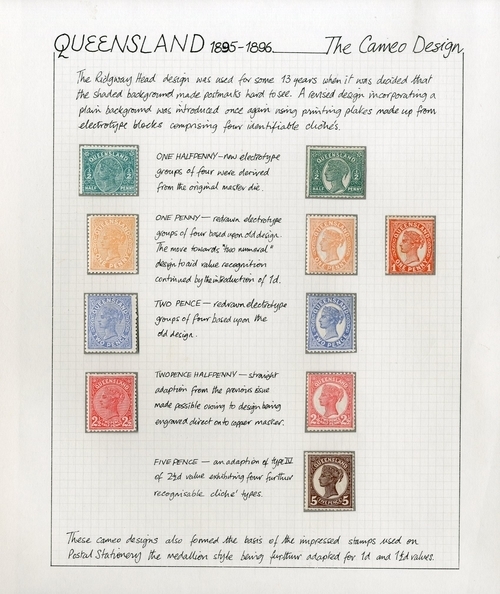 QUEENSLAND 1895-1896 The Cameo Design
The Ridgway Head design was used for some 13 years when it was decided that
the shaded background made postmarks hard to see. A revised design incorporating a
plain background was introduced once again using printing plates made up from
electrotype blocks comprising four identifiable clichés.
QUEENSLAND
½ ½
HALF PENNY
ONE HALFPENNY - new electrotype
groups of four were derived
from the original master die.
QUEENSLAND
½ ½
HALF PENNY
QUEENSLAND
ONE PENNY - redrawn electrotype
groups of four based upon old design.
The move towards "two numeral"
design to aid value recognition
continued by the introduction of 1d.
QUEENSLAND
ONE PENNY
QUEENSLAND
ONE PENNY 1
QUEENSLAND
TWO PENCE
TWO PENCE - redrawn electrotype
groups of four based upon the
old design.
QUEENSLAND
TWO PENCE
QUEENSLAND
2½ 2½
TWOPENCE HALFPENNY - straight
adaption from the previous issue
made possible owing to design being
engraved direct onto copper master.
QUEENSLAND
2½ 2½
FIVE PENCE - an adaption of type IV
of 2½d value exhibiting four further
recognisable cliché types.
QUEENSLAND
5 FIVE PENCE 5
These cameo designs also formed the basis of the impressed stamps used on
Postal Stationery the medallion style being further adapted for 1d and 1½d values.